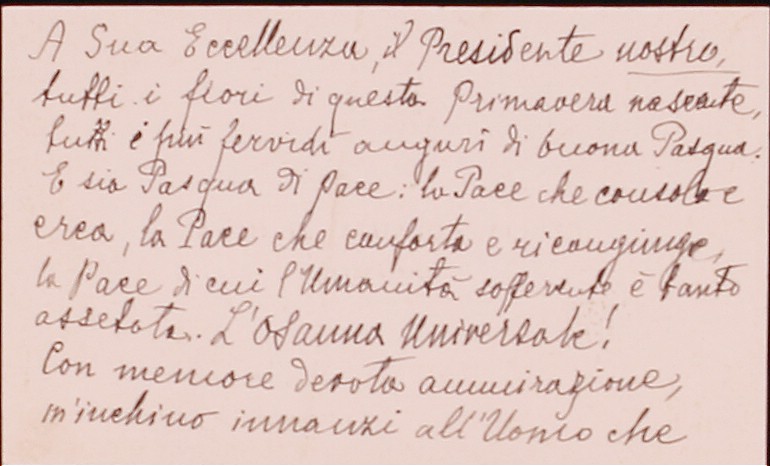 A Sua Eccellenza, il Presidente nostro,
tutti i fiori di questa Primavera nascente,
tutti i più fervidi auguri di buona Pasqua.
E sia Pasqua di pace: la Pace che consola e
crea, la Pace che conforta e ricongiunge,
la Pace di cui l'Umanità sofferente è tanto
assetata. L'Osanna Universale!
Con memore devota ammirazione,
m'inchino innanzi all'Uomo che